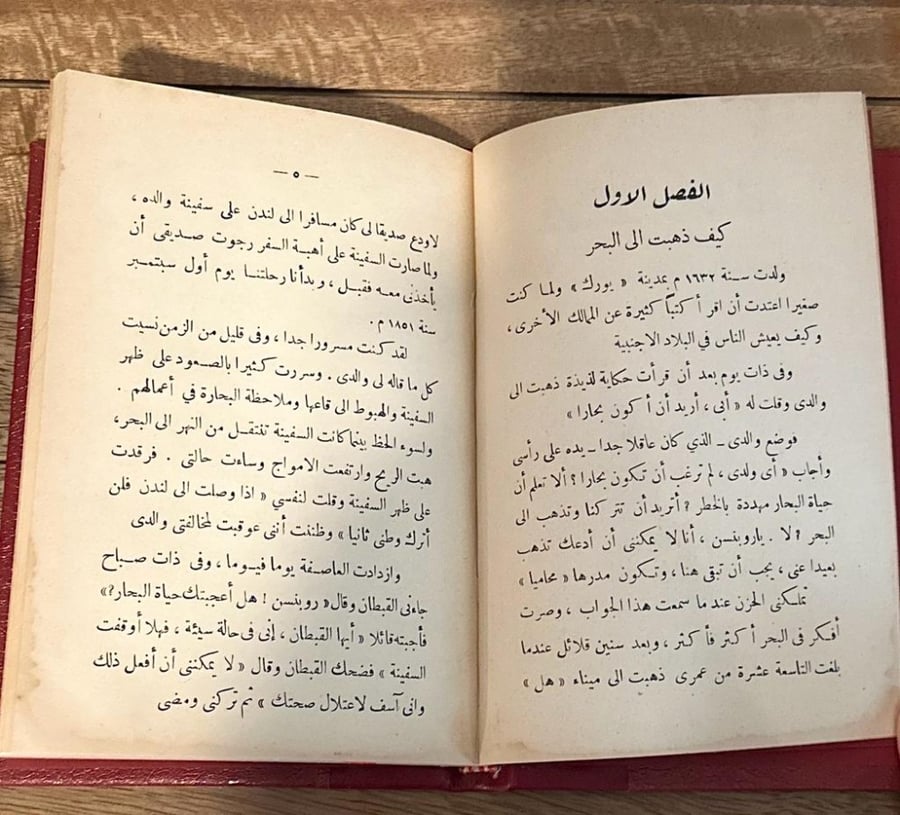 الفصل الاول
كيف ذهبت الى البحر
ولدت سنة ١٦٣٢ م بمدينة « يورك » ولما كنت
صغيرا اعتدت أن اقرأ كتباً كثيرة عن الممالك الأخرى ،
وكيف يعيش الناس في البلاد الاجنبية
وفى ذات يوم بعد أن قرأت حكاية لذيذة ذهبت الى
والدى وقلت له « أبى ، أريد أن أكون بحارا »
فوضع والدى ــ الذي كان عاقلا جدا ــ يده على رأسى
وأجاب « أى ولدى ، لم ترغب أن تكون بحارا ? ألا تعلم أن
حياة البحار مهددة بالخطر ? أتريد أن تتركنا وتذهب الى
البحر ? لا . ياروبنسن ، أنا لا يمكننى أن أدعك تذهب
بعيدا عنى ، يجب أن تبقى هنا ، وتكون مدرها « محاميا »
تملكنى الحزن عند ما سمعت هذا الجواب ، وصرت
أفكر فى البحر أكثر فأكثر ، وبعد سنين قلائل عندما
بلغت التاسعة عشرة من عمرى ذهبت الى ميناء « هل »
— ٥ —
لاودع صديقا لى كان مسافرا الى لندن على سفينة والده ،
ولما صارت السفينة على أهبة السفر رجوت صديقى أن
يأخذنى معه فقبل ، وبدأنا رحلتنا يوم أول سبتمبر
سنة ١٨٥١ م .
لقد كنت مسرورا جدا ، وفى قليل من الزمن نسيت
كل ما قاله لى والدى . وسررت كثيرا بالصعود على ظهر
السفينة والهبوط الى قاعها وملاحظة البحارة في أعمالهم .
ولسوء الحظ بينما كانت السفينة تنتقل من النهر الى البحر ،
هبت الريح وارتفعت الامواج وساءت حالتى . فرقدت
على ظهر السفينة وقلت لنفسي « اذا وصلت الى لندن فلن
أترك وطنى ثانيا » وظننت أننى عوقبت لمخالفتى والدى
وازدادت العاصفة يوما فيوما ، وفى ذات صباح
جاءنى القبطان وقال « روبنسن ! هل أعجبتك حياة البحار ? »
فأجبته قائلا « أيها القبطان ، إنى فى حالة سيئة ، فهلا أوقفت
السفينة » فضحك القبطان وقال « لا يمكننى أن أفعل ذلك
وانى آسف لاعتلال صحتك » ثم تركنى ومضى